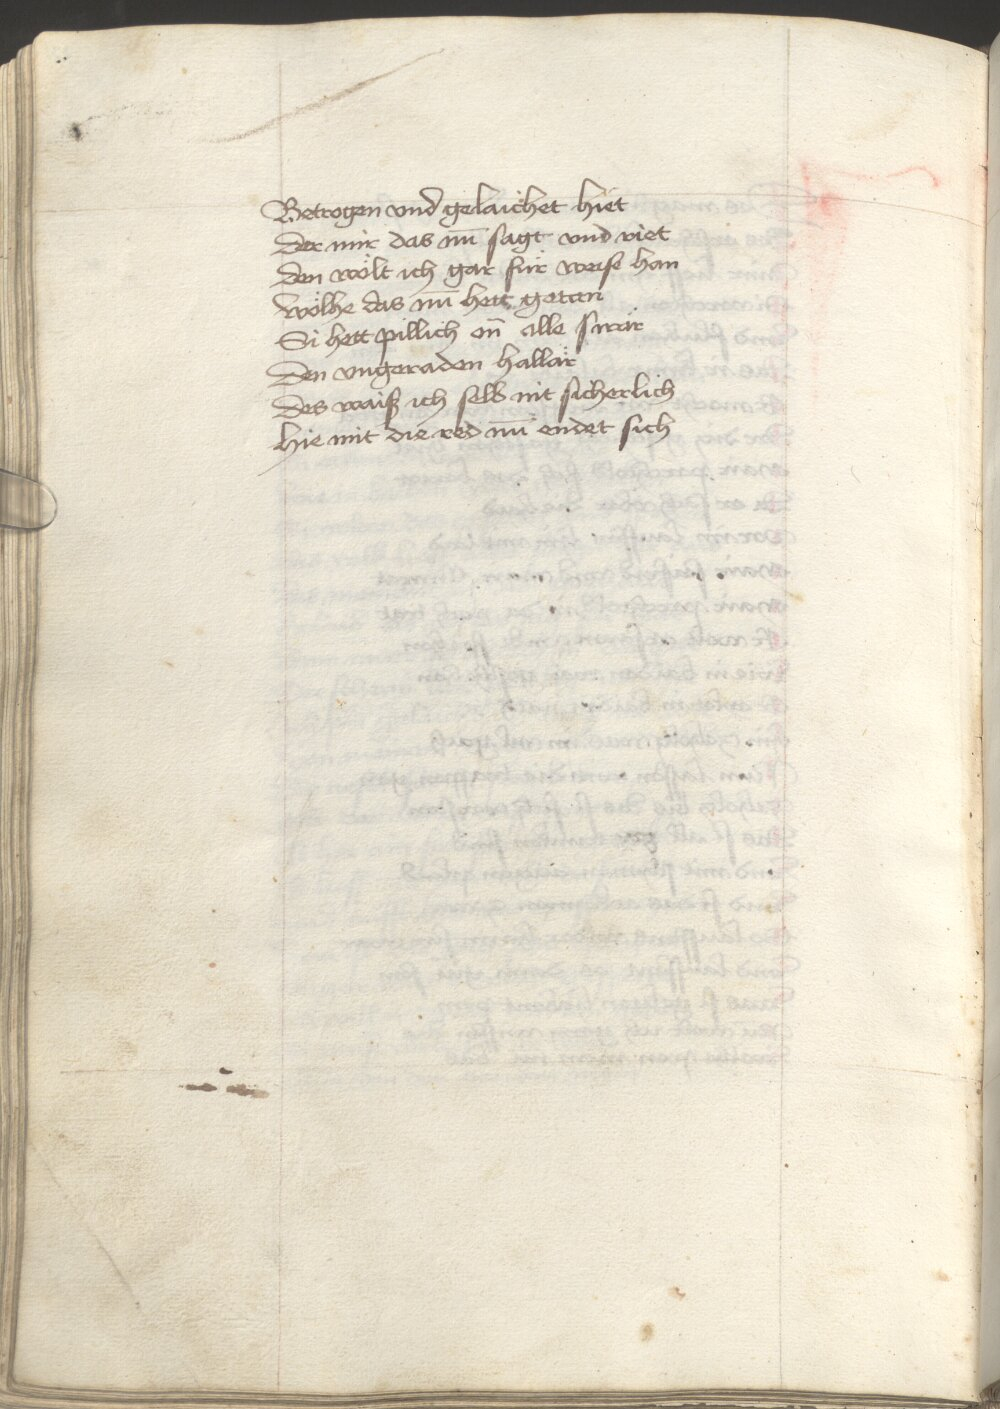 Betrogen vnd gelaichet hiet
Der mir das nu̅ sagt vnd riet
Den wölt ich gar für weise han
Wölhe das nu̅ hett getan
Si hett pillich on̅ alle swär
Den vngeraden hallär
Des waiß ich selb nit sicherlich
Hie mit die red nu̅ endet sich